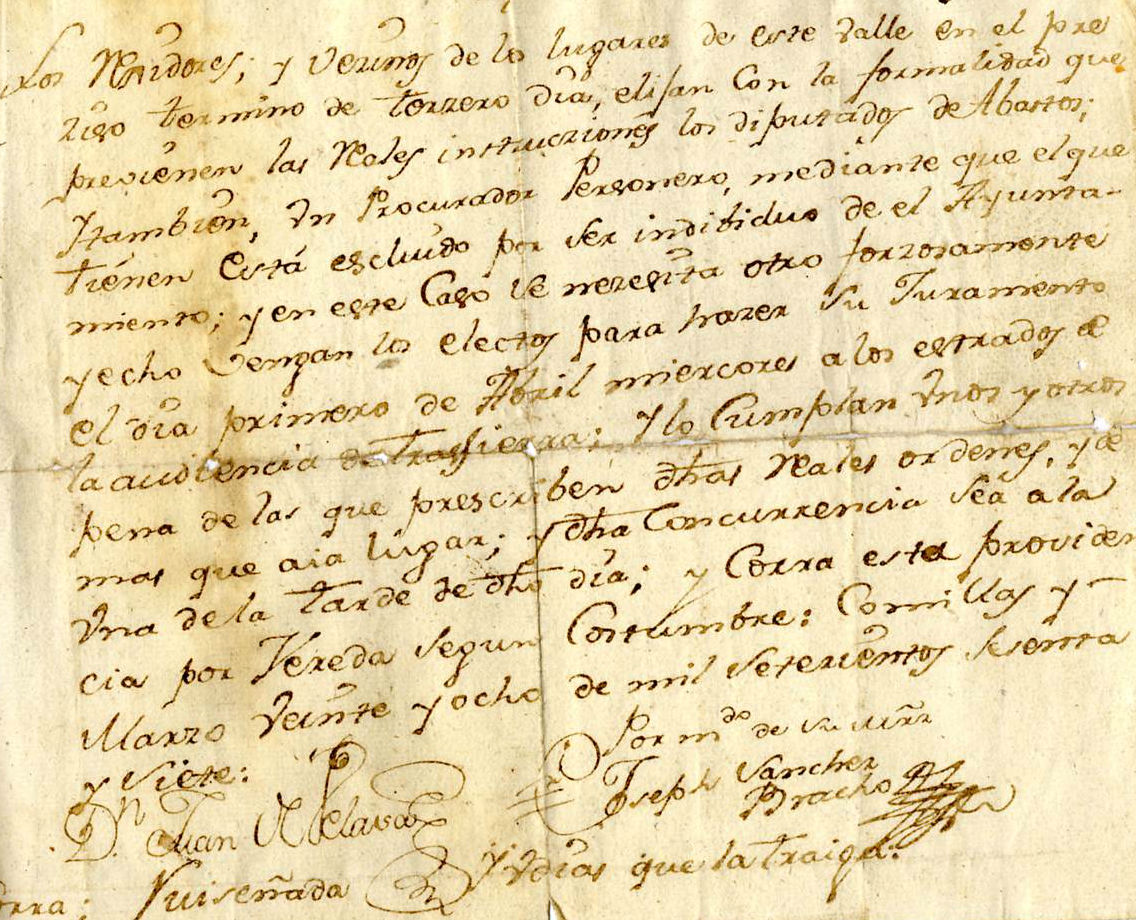 Los Rexidores; y Vezinos de lo lugares de este valle en el pre
ziso termino de terzero dia, elijan Con la formalidad que
previenen las Rales instruziones los diputados de Abastos;
Ytambien, Vn Procurador Personero, mediante que el que
tienen Está escluido por ser indibiduo de el Ayunta-
miento; y en este Caso se nezesita otro forzosamente
y echo Vengan los electos para hazer su Juramento
el dia primero de Abril miercores a los estrados de
la audiencia de Trassierra; Y lo Cumplan Vnos y otros
pena de las que prescriben dhas Rales ordenes, y de
mas que aia lugar; y dha Concurrencia sea a la
Vna de la tarde de dho dia; y Corra esta providen
cia por Vereda segun Costumbre: Comillas y
Marzo Veinte y ocho de mil setezientos sesenta
y siete:
Por mdo de su mrz
Dn Juan
Joseph Sanchez
Bracho
rra; Ruiseñada
Y Vdias que la traiga: